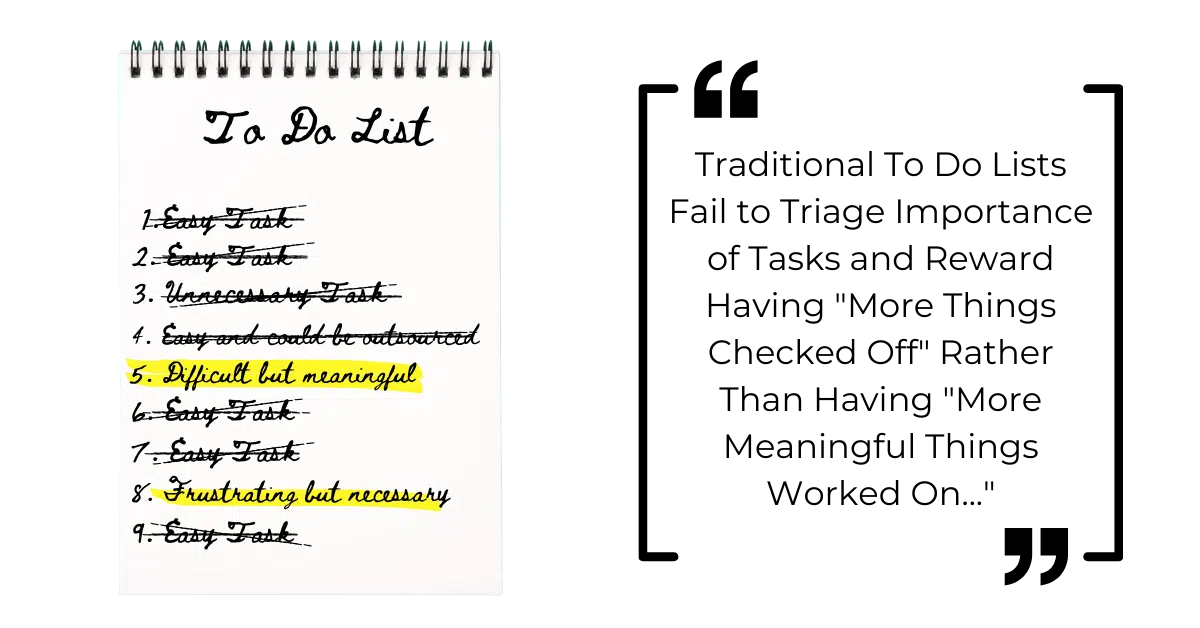 To Do List
1. Easy Task
2. Easy Task
3. Unnecessary Task
4. Easy and could be outsourced
5. Difficult but meaningful
6. Easy Task
7. Easy Task
8. Frustrating but necessary
9. Easy Task
“
Traditional To Do Lists
Fail to Triage Importance
of Tasks and Reward
Having "More Things
Checked Off" Rather
Than Having "More
Meaningful Things
Worked On..."
”